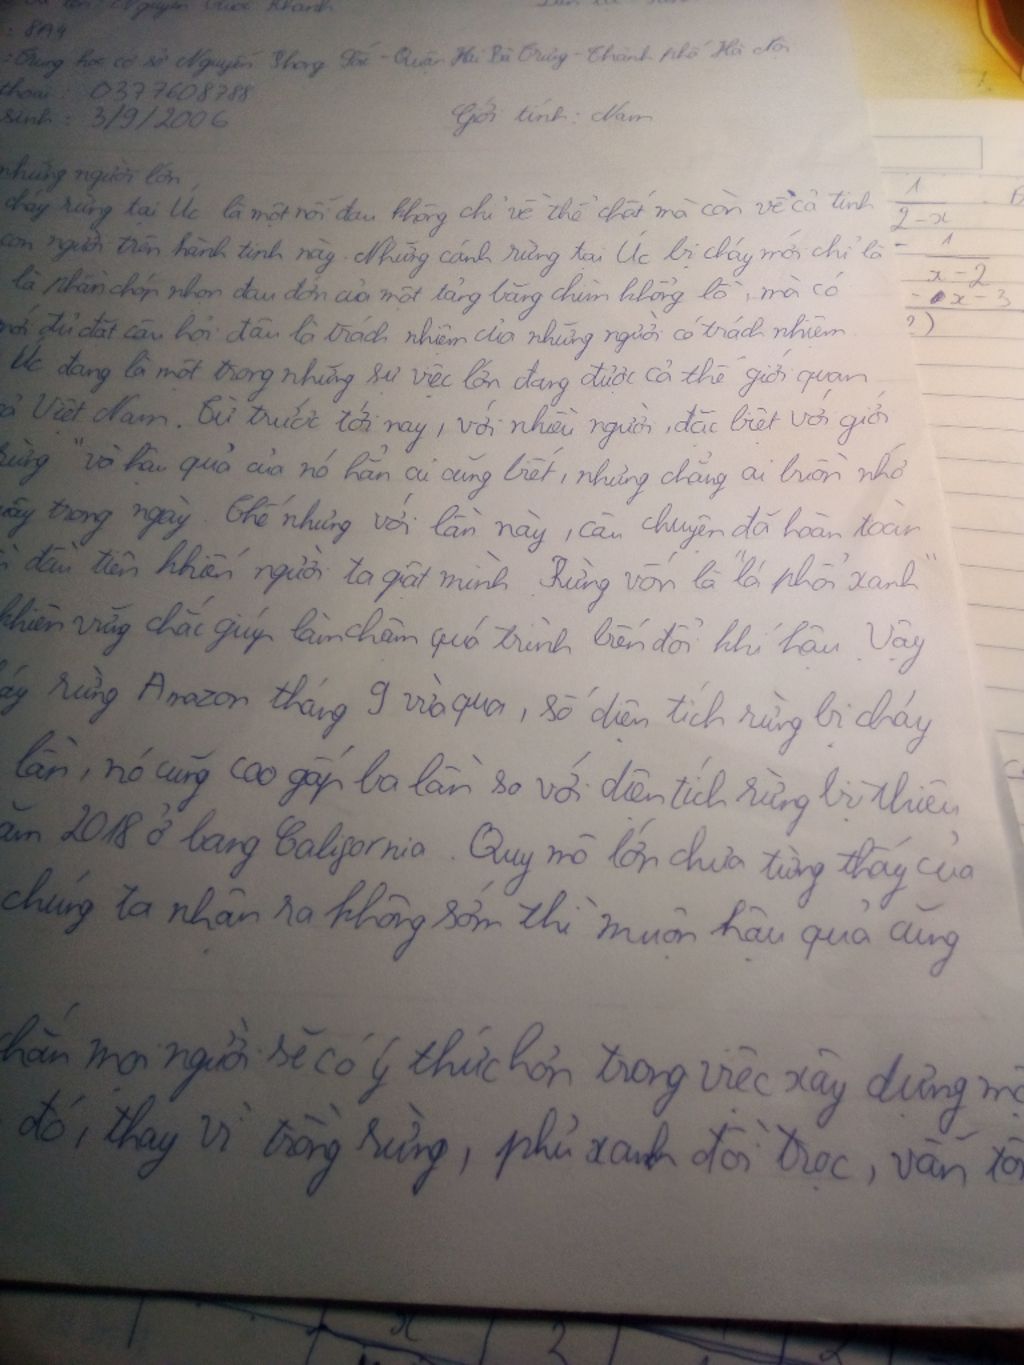 Nguyễn Quốc Khánh
: 8A4
: Trung học cơ sở Nguyễn Phong Sắc - Quận Hai Bà Trưng - Thành phố Hà Nội
thoại : 0377608788
sinh : 3/9/2006 Giới tính : Nam
những người lớn
cháy rừng tại Úc là một nỗi đau không chỉ về thể chất mà còn về cả tinh
con người trên hành tinh này. Những cánh rừng tại Úc bị cháy mới chỉ là
là phần chóp nhọn đau đớn của một tảng băng chìm khổng lồ, mà có
mới đủ đặt câu hỏi đâu là trách nhiệm của những người có trách nhiệm
Úc đang là một trong những sự việc lớn đang được cả thế giới quan
Việt Nam. Từ trước tới nay, với nhiều người, đặc biệt với giới
rừng" và hậu quả của nó hẳn ai cũng biết, nhưng chẳng ai buồn nhớ
trong ngày. Thế nhưng với lần này, câu chuyện đã hoàn toàn
đầu tiên khiến người ta giật mình. Rừng vốn là "lá phổi xanh"
khiên vững chắc giúp làm chậm quá trình biến đổi khí hậu. Vậy
rừng Amazon tháng 9 vừa qua, số diện tích rừng bị cháy
lần, nó cũng cao gấp ba lần so với diện tích rừng bị thiêu
2018 ở bang California. Quy mô lớn chưa từng thấy của
chúng ta nhận ra không sớm thì muộn hậu quả cũng
mọi người sẽ có ý thức hơn trong việc xây dựng
đó, thay vì trồng rừng, phủ xanh đồi trọc, vẫn
1
2-x
- 1
x-2
x-3
?)
x
2